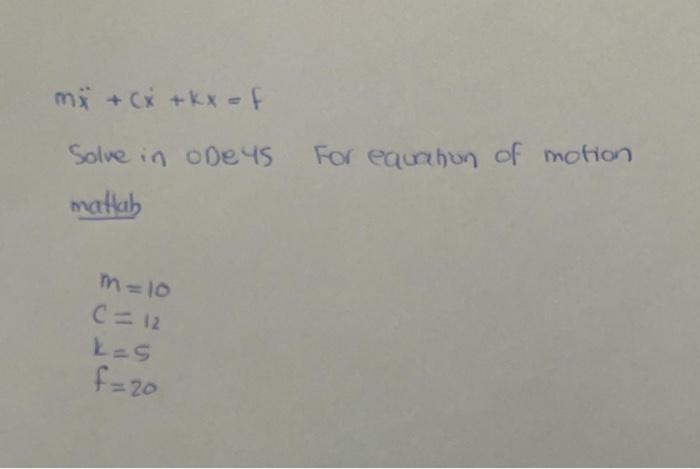 mẍ + cẋ + kx = f
Solve in ODe45 For equation of motion
matlab
m=10
C=12
k=5
f=20